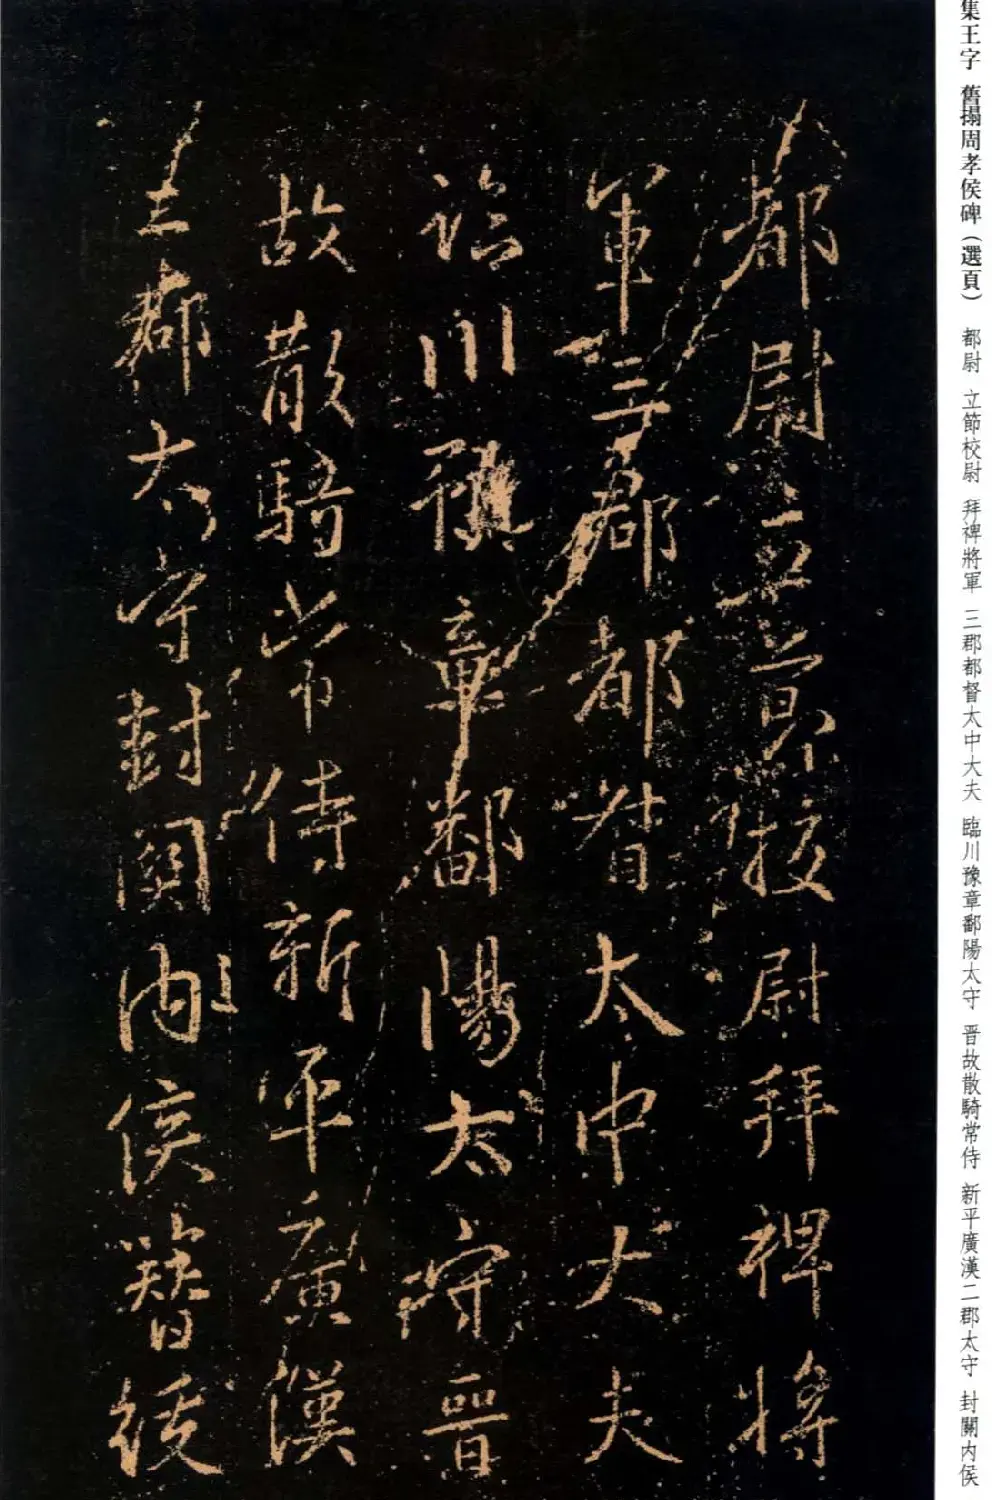 集王字 舊搨周孝侯碑（選頁） 都尉 立節校尉 拜裨將軍 三郡都督太中大夫 臨川豫章鄱陽太守 晋故散騎常侍 新平廣漢二郡太守 封關内侯
都尉立節校尉拜裨將
軍三郡都督太中大夫
臨川豫章鄱陽太守晉
故散騎常侍新平廣漢
二郡太守封關内侯簪緌